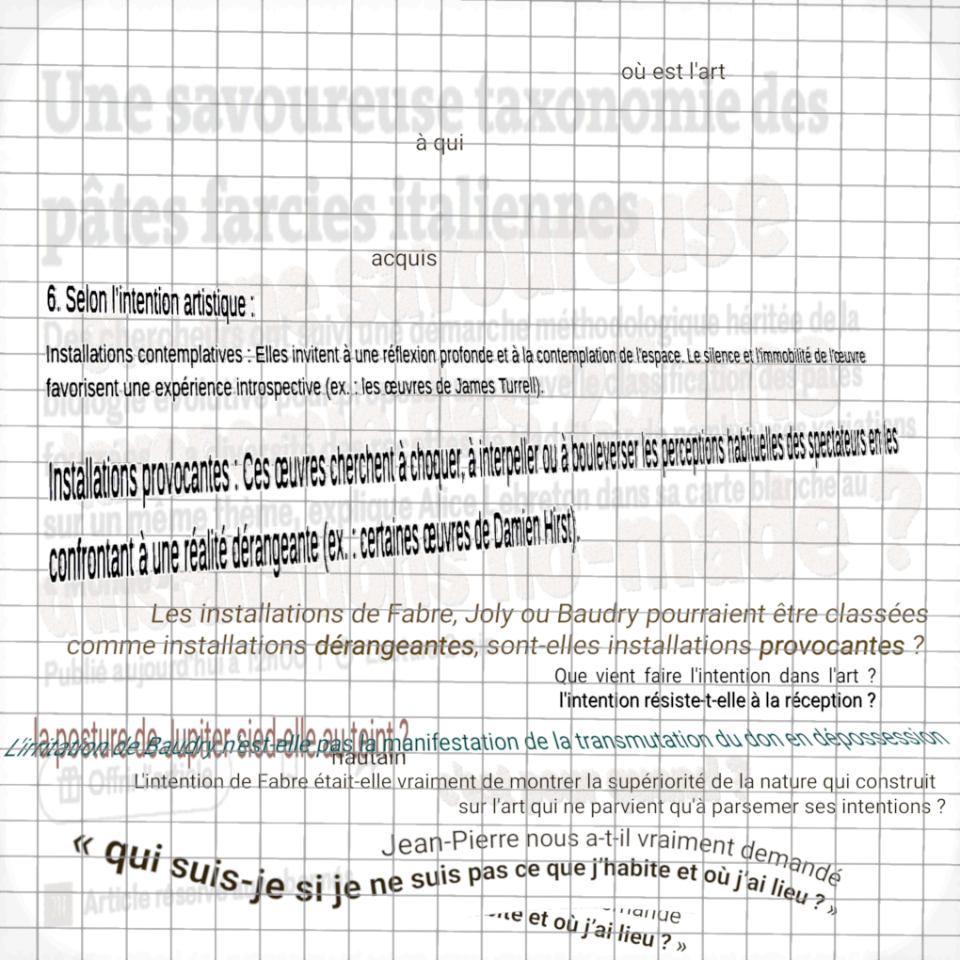 où est l'art
Une savoureuse taxonomie des
à qui
pâtes farcies italiennes
savoureuse
acquis
6. Selon l'intention artistique :
Des chercheurs ont suivi une démarche méthodologique héritée de la
Installations contemplatives : Elles invitent à une réflexion profonde et à la contemplation de l'espace. Le silence et l'immobilité de l'œuvre
favorisent une expérience introspective (ex. : les œuvres de James Turrell).
biologie évolutive pour classification des pâtes
variations
Installations provocantes : Ces œuvres cherchent à choquer, à interpeller ou à bouleverser les perceptions habituelles des spectateurs en les
sur un même thème, explique Alice Lebreton dans sa carte blanche au
confrontant à une réalité dérangeante (ex. : certaines œuvres de Damien Hirst).
d'installations ho-made ?
Les installations de Fabre, Joly ou Baudry pourraient être classées
comme installations dérangeantes, sont-elles installations provocantes ?
Publié aujourd'hui à 12h00
Que vient faire l'intention dans l'art ?
l'intention résiste-t-elle à la réception ?
la posture de Jupiter sied-elle au teint ?
L'irritation de Baudry n'est-elle pas la manifestation de la transmutation du don en dépossession
hautain
Offrir l'article
L'intention de Fabre était-elle vraiment de montrer la supériorité de la nature qui construit
sur l'art qui ne parvient qu'à parsemer ses intentions ?
Jean-Pierre nous a-t-il vraiment demandé
« qui suis-je si je ne suis pas ce que j'habite et où j'ai lieu ? »
Article réservé
et où j'ai lieu ? »